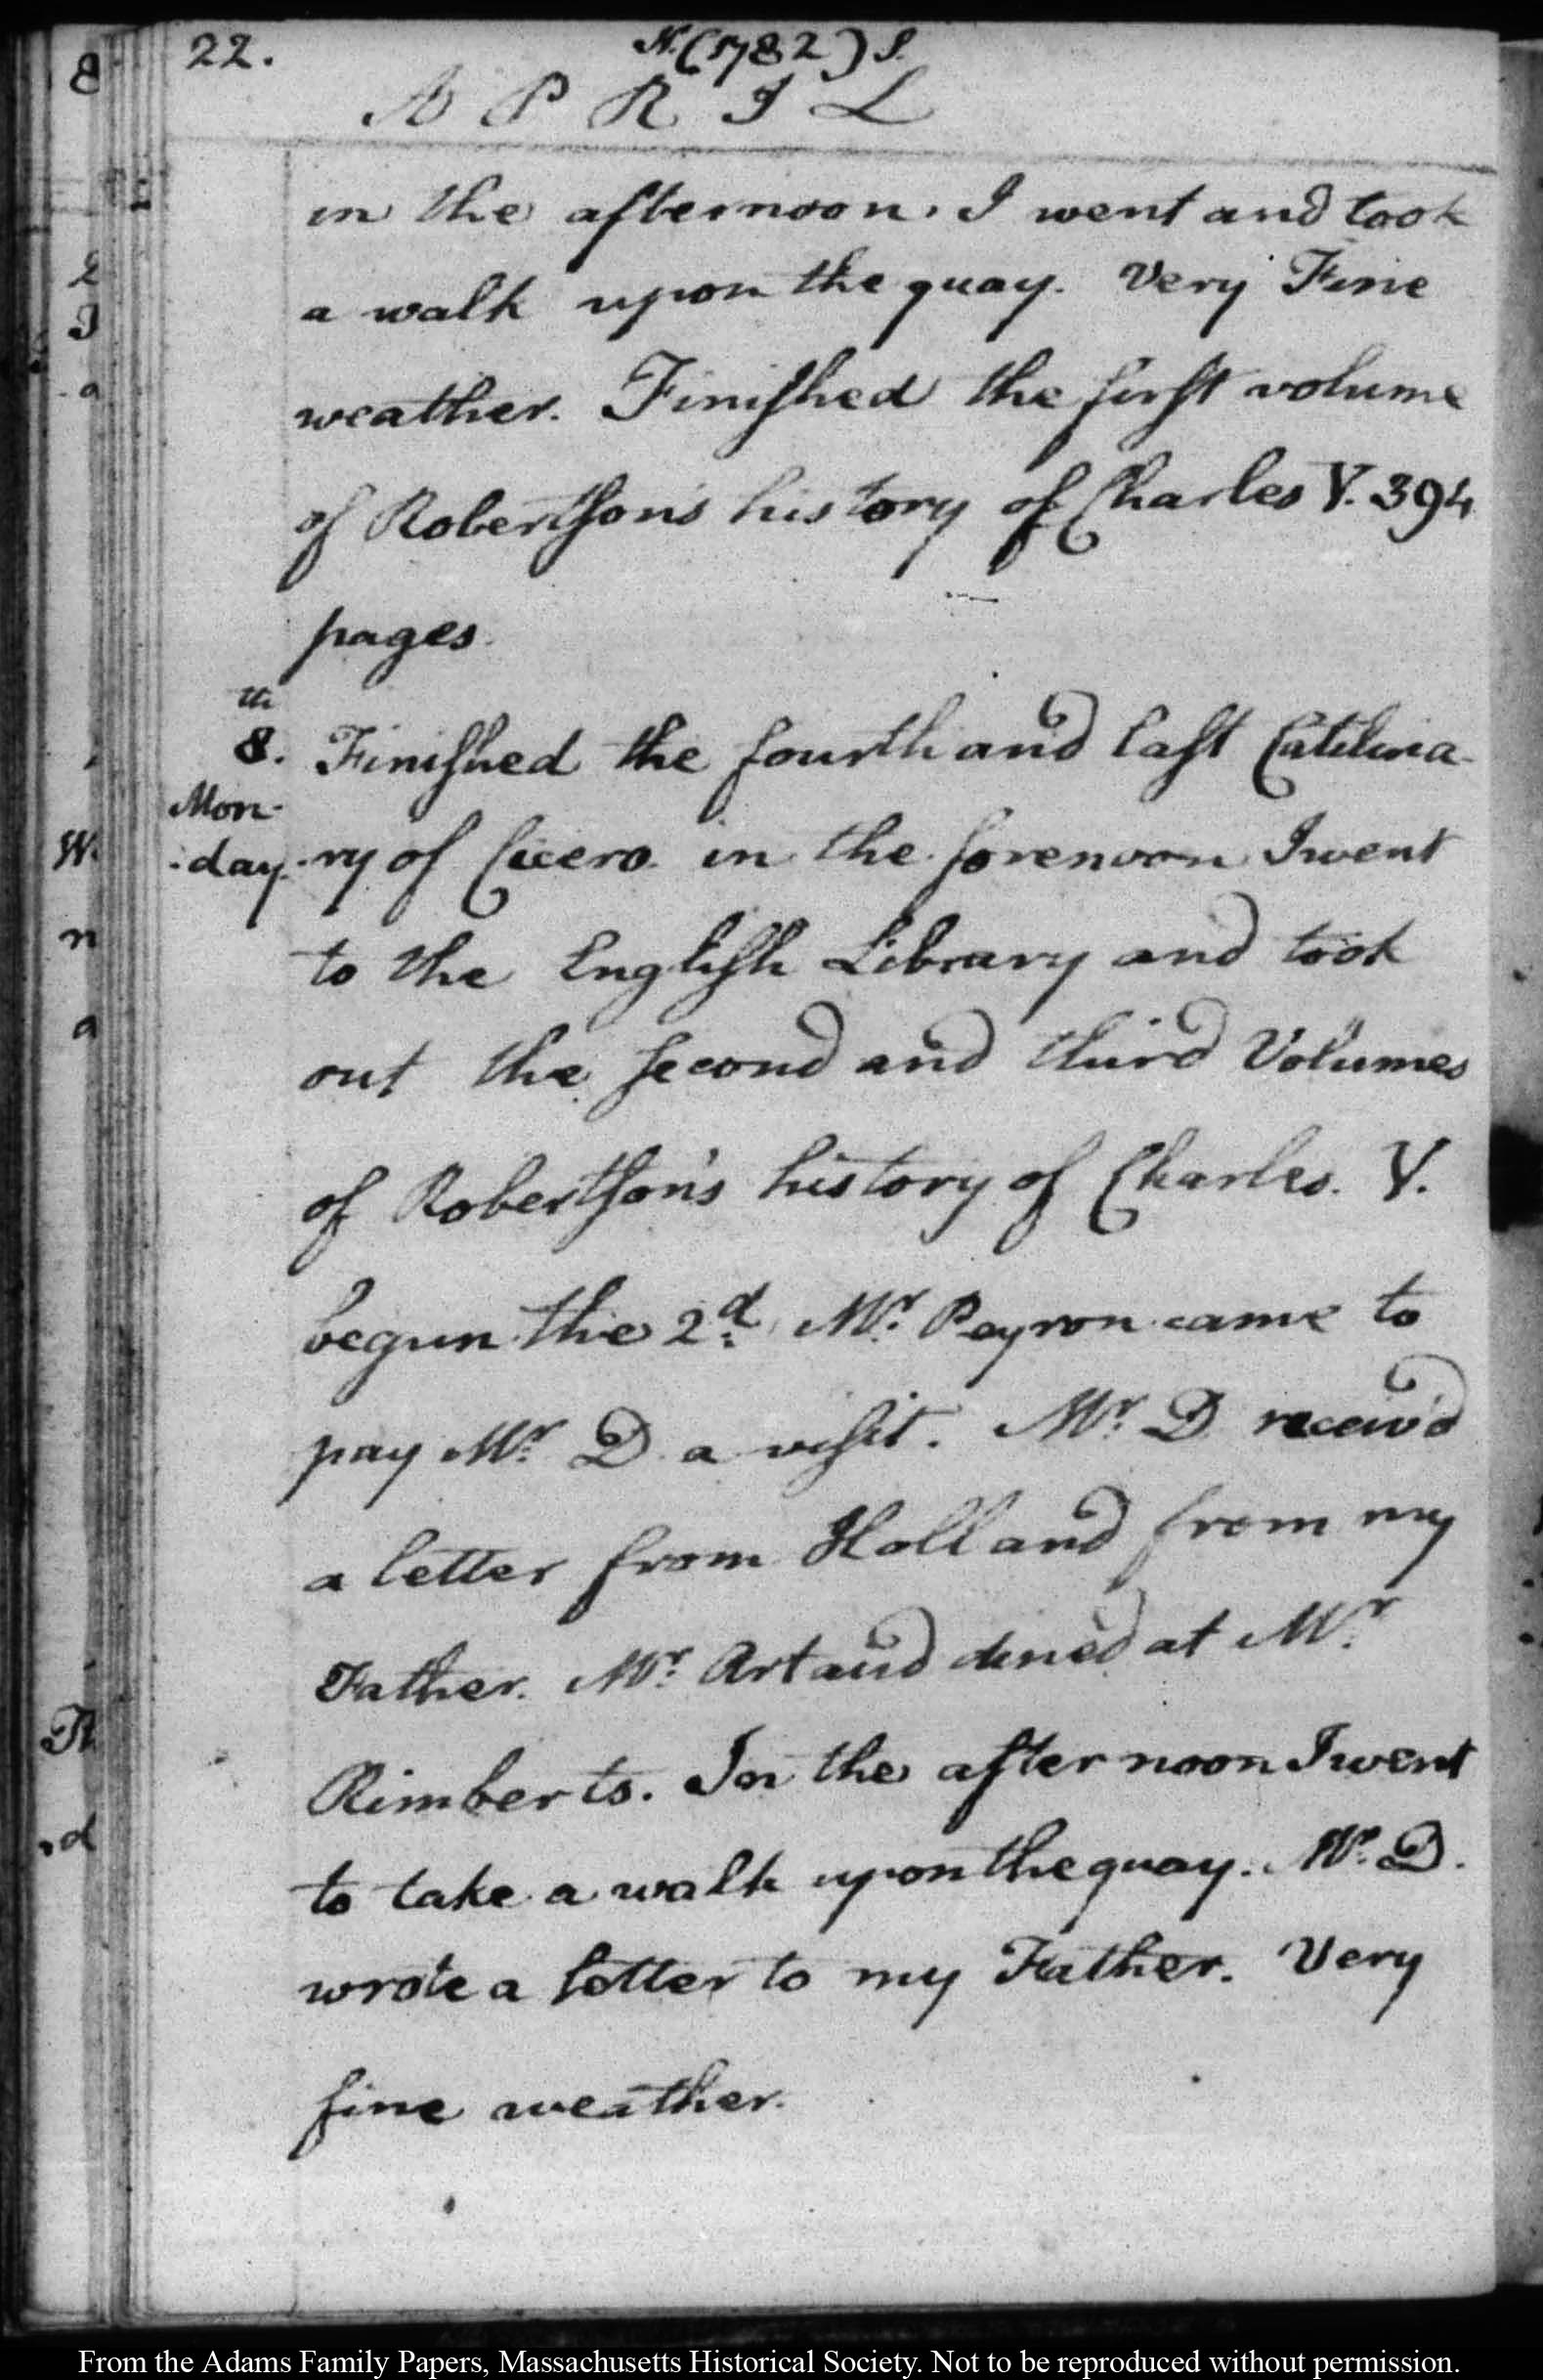 22.
N. (1782) S.
APRIL
in the afternoon. I went and took
a walk upon the quay. Very Fine
weather. Finiſhed the firſt volume
of Robertſon's history of Charles V. 394
pages.
th
8. Finiſhed the fourth and laſt Catilina-
Mon-
-day. -ry of Cicero. in the forenoon I went
to the Engliſh Library and took
out the ſecond and third Volumes
of Robertſon's history of Charles. V.
begun the 2d. Mr. Peyron came to
pay Mr. D. a viſit. Mr. D. receiv'd
a letter from Holland from my
Father. Mr. Artaud dined at Mr.
Rimberts. In the afternoon I went
to take a walk upon the quay. Mr. D.
wrote a letter to my Father. Very
fine weather.
From the Adams Family Papers, Massachusetts Historical Society. Not to be reproduced without permission.